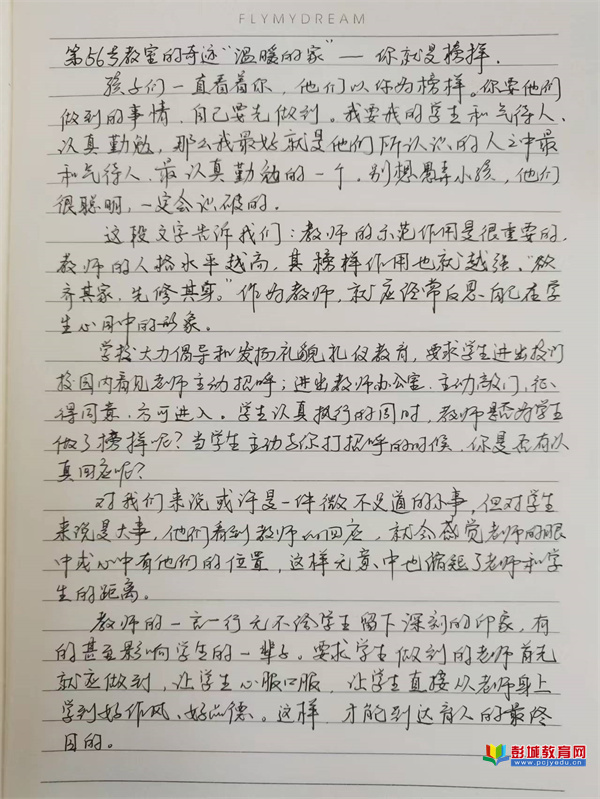 FLYMYDREAM
第56号教室的奇迹“温暖的家”— 你就是榜样.
孩子们一直看着你，他们以你为榜样。你要他们
做到的事情，自己要先做到。我要我的学生和气待人、
认真勤勉，那么我最好就是他们所认识的人之中最
和气待人、最认真勤勉的一个。别想愚弄小孩，他们
很聪明，一定会识破的。
这段文字告诉我们：教师的示范作用是很重要的.
教师的人格水平越高，其榜样作用也就越强。“欲
齐其家，先修其身。”作为教师，就应经常反思自己在学
生心目中的形象。
学校大力倡导和发扬礼貌礼仪教育，要求学生进出校门
校园内看见老师主动招呼；进出教师办公室，主动敲门，征
得同意，方可进入。学生认真执行的同时，教师是否为学生
做了榜样呢？当学生主动去你打招呼的时候，你是否有认
真回应呢？
对我们来说或许是一件微不足道的小事，但对学生
来说是大事，他们看到教师的回应，就会感觉老师的眼
中或心中有他们的位置，这样无意中也缩短了老师和学
生的距离。
教师的一言一行无不给学生留下深刻的印象，有
的甚至影响学生的一辈子。要求学生做到的老师首先
就应做到，让学生心服口服，让学生直接从老师身上
学到好作风、好品德。这样，才能到达育人的最终
目的。
彭城教育网
www.pcjyedu.cn